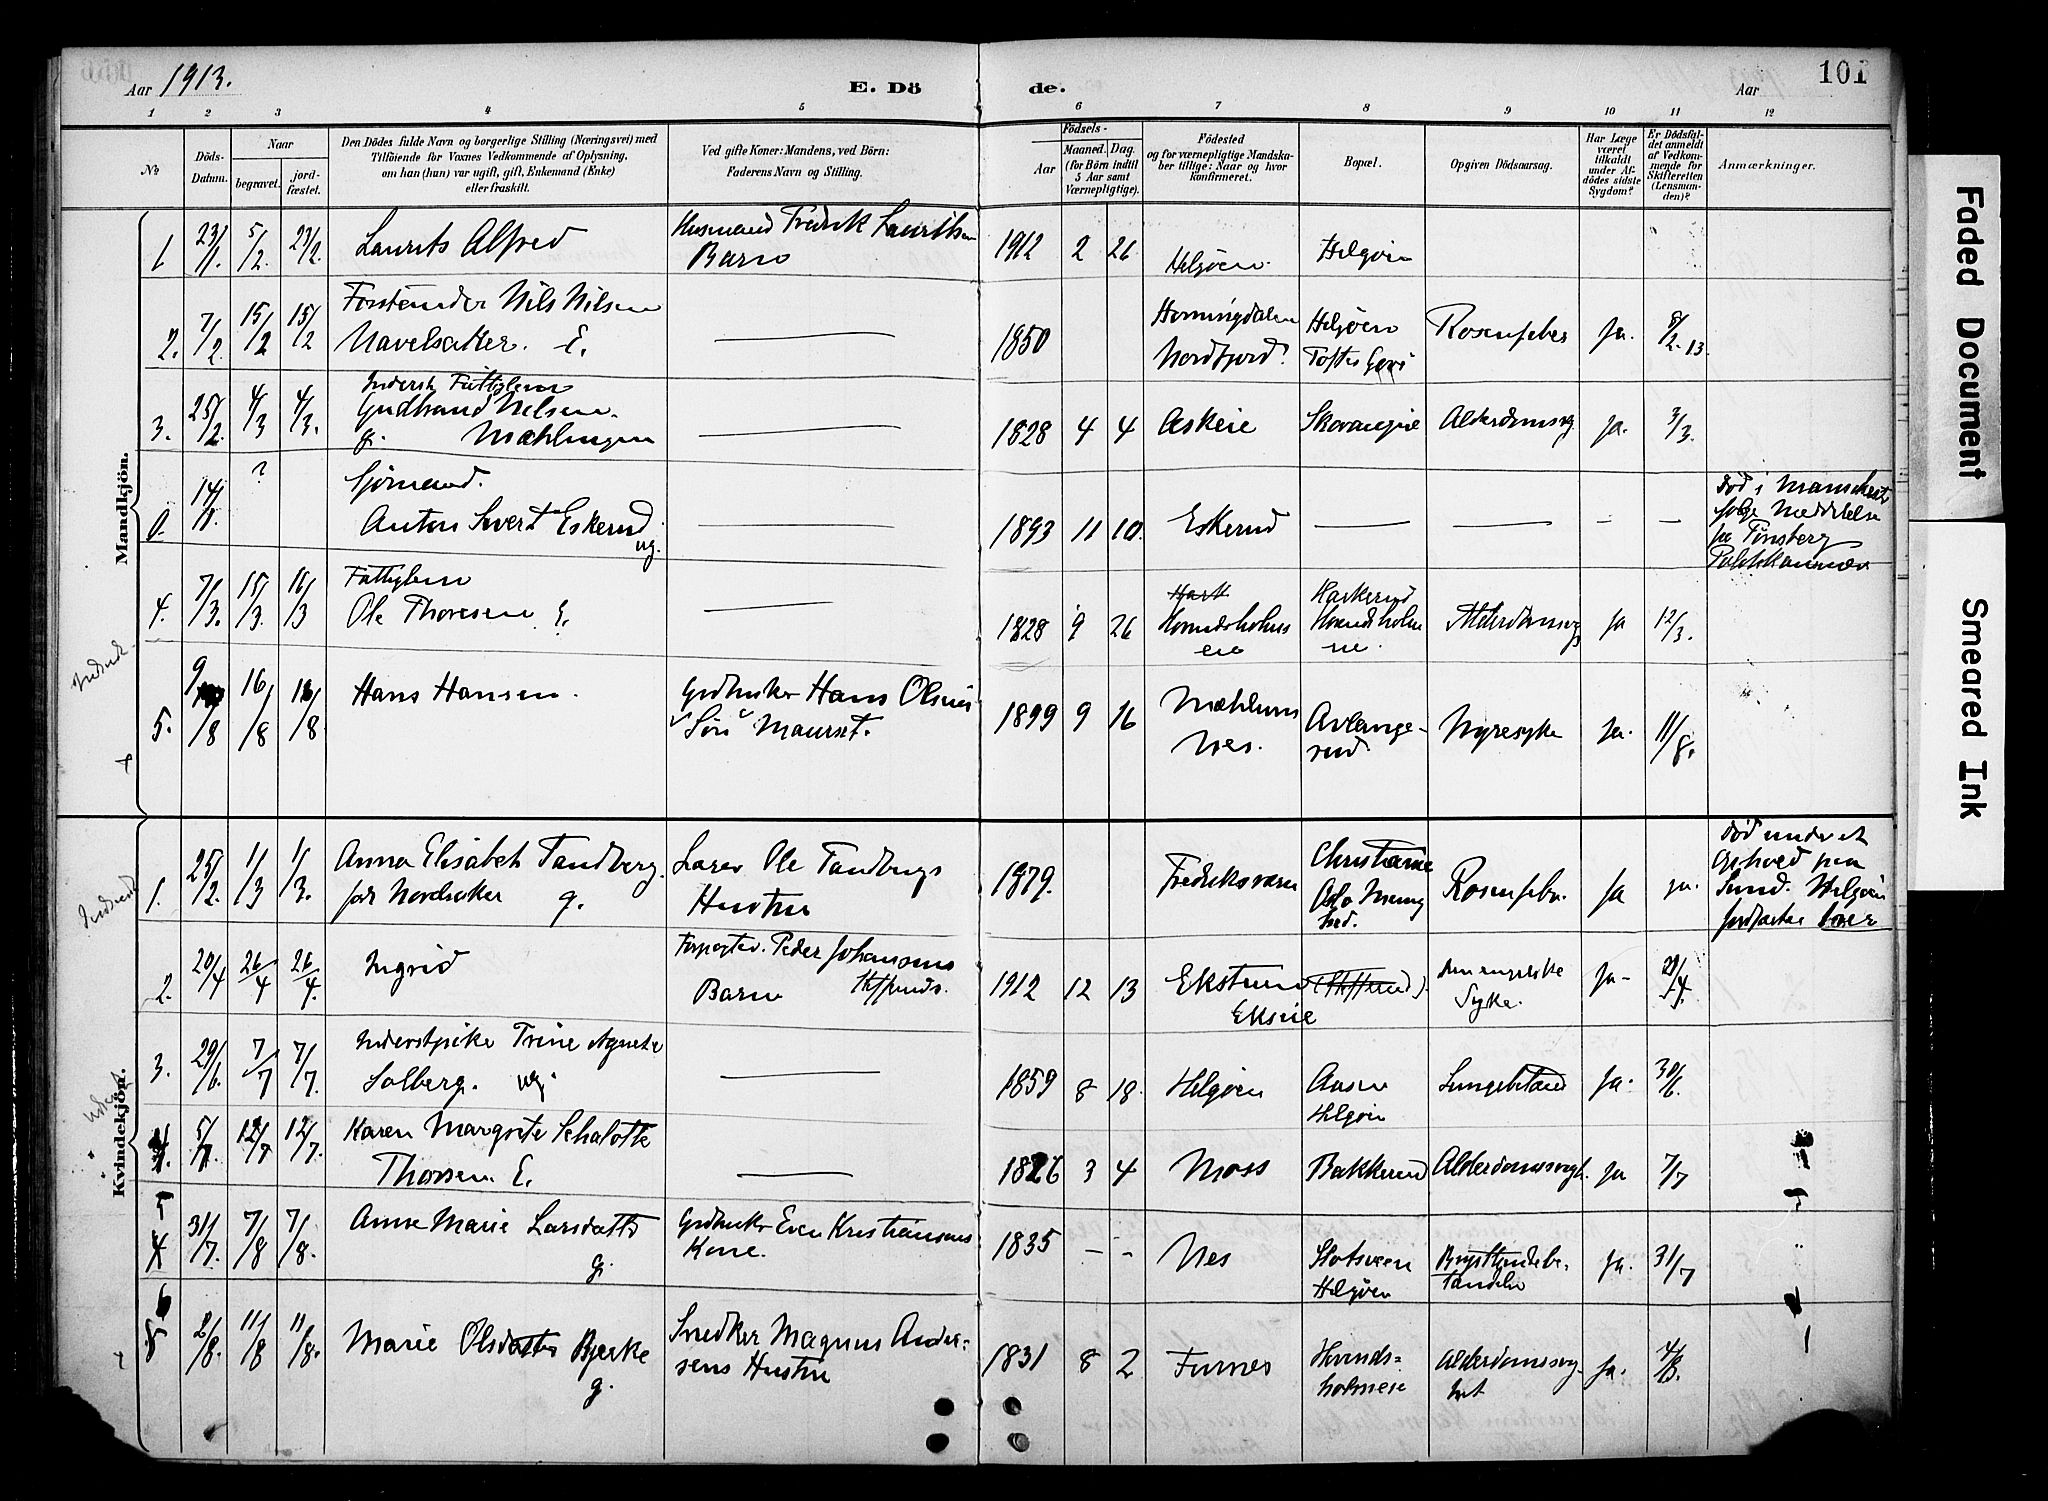 Aar 1913.
E. Dö de.
Aar
101
1 2 3 4 5 6 7 8 9 10 11 12
No
Döds-Datum.
Naar
begravet.
jord-fæstet.
Den Dödes fulde Navn og borgerlige Stilling (Næringsvei) med
Tilföiende for Voxnes Vedkommende af Oplysning,
om han (hun) var ugift, gift, Enkemand (Enke)
eller fraskilt.
Ved gifte Koner: Mandens, ved Börn:
Faderens Navn og Stilling.
Födsels-
Aar
Maaned. Dag.
(for Börn indtil
5 Aar samt
Værnepligtige).
Födested
og for værnepligtige Mandska-
ber tillige: Naar og hvor
konfirmeret.
Bopæl.
Opgiven Dödsaarsag.
Har Læge
været
tilkaldt
under Af-
dödes sidste
Sygdom?
Er Dödsfal-
det anmeldt
af Vedkom-
mende for
Skifteretten
(Lensman-
den)?
Anmærkninger.
Mandkjön.
1 23/1. 5/2. 23/2. Laurits Alfred
Husmand Fredrik Lauritsen
Barn
1912 2 26 Helgøen. Helgøen
2. 7/2. 15/2 15/2 Forstander Nils Nilsen
Navelsaker. E.
1850 Horningdalen
Nordfjord.
Helgøen
Toftes Gave
Rosenfeber Ja. 8/2. 13.
3. 25/2. 4/3 4/3. Fattiglem
Gudbrand Nilsen
g. Mæhlingen
1828 4 4 Askeie Skavangeie Alderdomssvg. Ja. 3/3.
0. 14/11. ? Sjømand.
Anton Sivert Eskerud
ug.
1893 11 10. Eskerud
Død i Manchester
følge Meddelelse
fra Tønsberg
4. 7/3. 15/3. 16/3 Fattiglem
Ole Thoresen E.
1828 9 26 Hovindsholms
eie
Hovindsholm
Alderdomssvg Ja 12/3.
5. 9/8 16/8 16/8. Hans Hansen.
Gdbruker Hans Olsens
Søn Maurset.
1899 9 16 Mæhlum
Nes.
Avlange-
rud
Nyresyke Ja. 11/8.
Kvindekjön.
1. 25/2. 1/3 1/3. Anna Elisabet Tandberg.
født Nordsaker g.
Lærer Ole Tandbergs
Hustru
1879. Fredriksværn Christiania
Rosenfeber Ja ja.
Død under et
ophold paa
Sund. Helgøen
jordfæstet
2. 20/4 26/4 26/4. Ingrid
Forpagter. Peder Johansens
Barn
1912 12 13 Ekstrem
Ekseie
Den engelske
Syke. Ja- 21/4.
3. 29/6. 7/7 7/7. Inderstpike Trine Agnete
Solberg. ug.
1859 8 18. Helgøen Aasen
Helgøen
Lungebetænd Ja. 30/6.
4. 5/7. 12/7 12/7. Karen Margrete Schalotte
Thorsen E.
1826 3 4 Moss Bakkerud Alderdomssvagh. Ja 7/7
5 4 31/7. 7/8 7/8. Anne Marie Larsdatter
g.
Gdbruker Even Kristiansens
Kone.
1835 - - Nes Slotsveen
Helgøen
Brysthindebe-
tændelse Ja. 31/7
6 2/8. 11/8 11/8. Marie Olsdatter Bjerke
g.
Snedker Magnus Ander-
sens Hustru
1831 8 2 Furnes Hovinds-
holmeie
Alderdomssvag-
het Ja. 4/8.
Faded Document
Smeared Ink